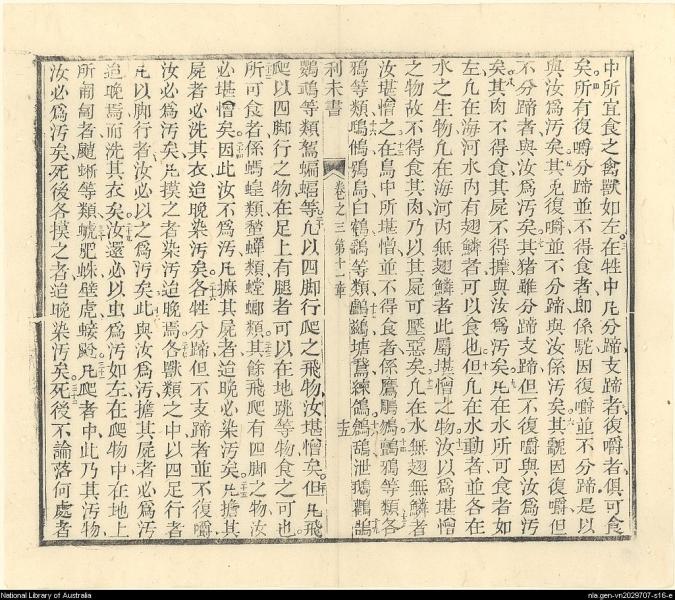 中所宜食之禽獸如左在牲中凡分蹄支蹄者復嚼者俱可食
矣所有復嚼分蹄並不得食者即係駝因復嚼並不分蹄是以
與汝爲汚矣其兎復嚼並不分蹄與汝係汚矣其因復嚼但
不分蹄者與汝爲汚矣其猪雖分蹄支蹄但不復嚼與汝爲汚
矣其肉不得食其屍不得與汝爲汚矣凡在水所可食者如
左凡在海河水內有翅鱗者可以食也但凡在水動者並各在
水之生物凡在海河內無翅鱗者此屬堪憎之物汝以爲堪憎
之物故不得食其肉乃以其屍可壓惡矣凡在水無翅無鱗者
汝堪憎之在鳥中所堪憎並不得食者係鷹鵰鴉等類各
鴉等類鳥白鶴等類鸕鶿塘鵞練鴿泄鵝鸛
利未書 卷之三第十一章 十五
鸚鵡等類鴽蝙蝠等凡以四脚行爬之飛物汝堪憎矣但凡飛
爬以四脚行之物在足上有腿者可以在地跳等物食之可也
所可食者係螞蝗類螳螂類其餘飛爬有四脚之物汝
必堪憎矣因此汝不爲汚凡摸其屍者迨晚必染汚矣凡擔其
屍者必洗其衣迨晚染汚矣各牲分蹄但不支蹄者並不復嚼
汝必爲汚矣凡摸之者染汚迨晚焉各獸類之中以四足行者
凡以脚行者汝必以之爲汚矣此與汝爲汚擔其屍者必爲汚
迨晚焉而洗其衣矣汝還必以虫爲汚如左在爬物中在地上
所匍匐者等類蛛壁虎凡爬者中此乃其汚物
汝必爲汚矣死後各摸之者迨晚染汚矣死後不論落何處者
National Library of Australia
nla.gen-vn2029707-s16-e